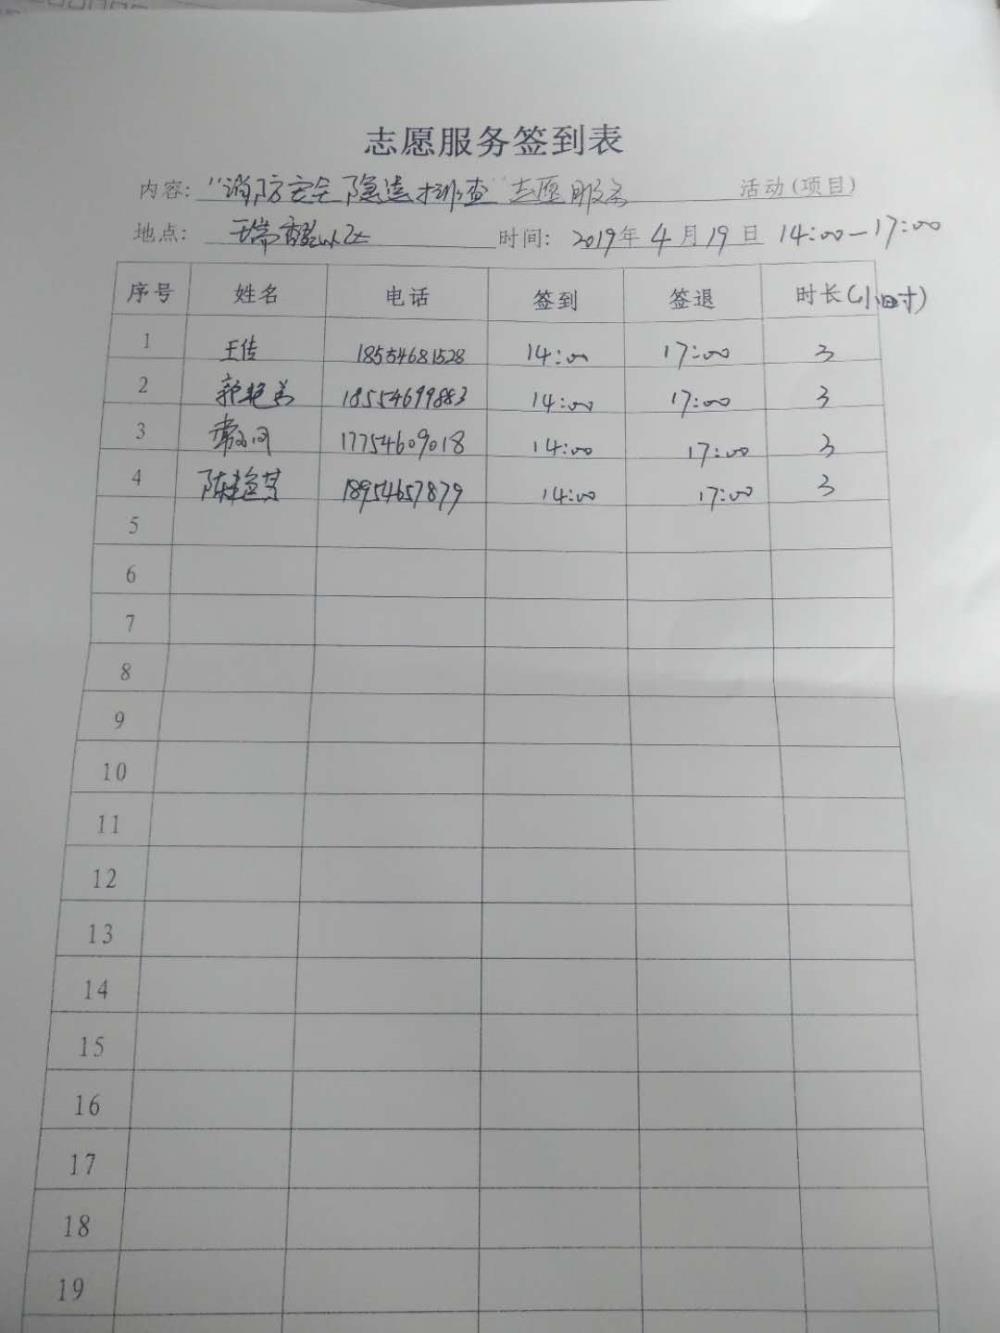 志愿服务签到表
内容: "消防安全隐患排查"志愿服务 活动(项目)
地点: 时间: 2019年4月19日 14:00—17:00
序号 姓名 电话 签到 签退 时长(小时)
1 王传 18554681528 14:00 17:00 3
2 18554699883 14:00 17:00 3
3 17754609018 14:00 17:00 3
4 陈 18954657879 14:00 17:00 3
5
6
7
8
9
10
11
12
13
14
15
16
17
18
19